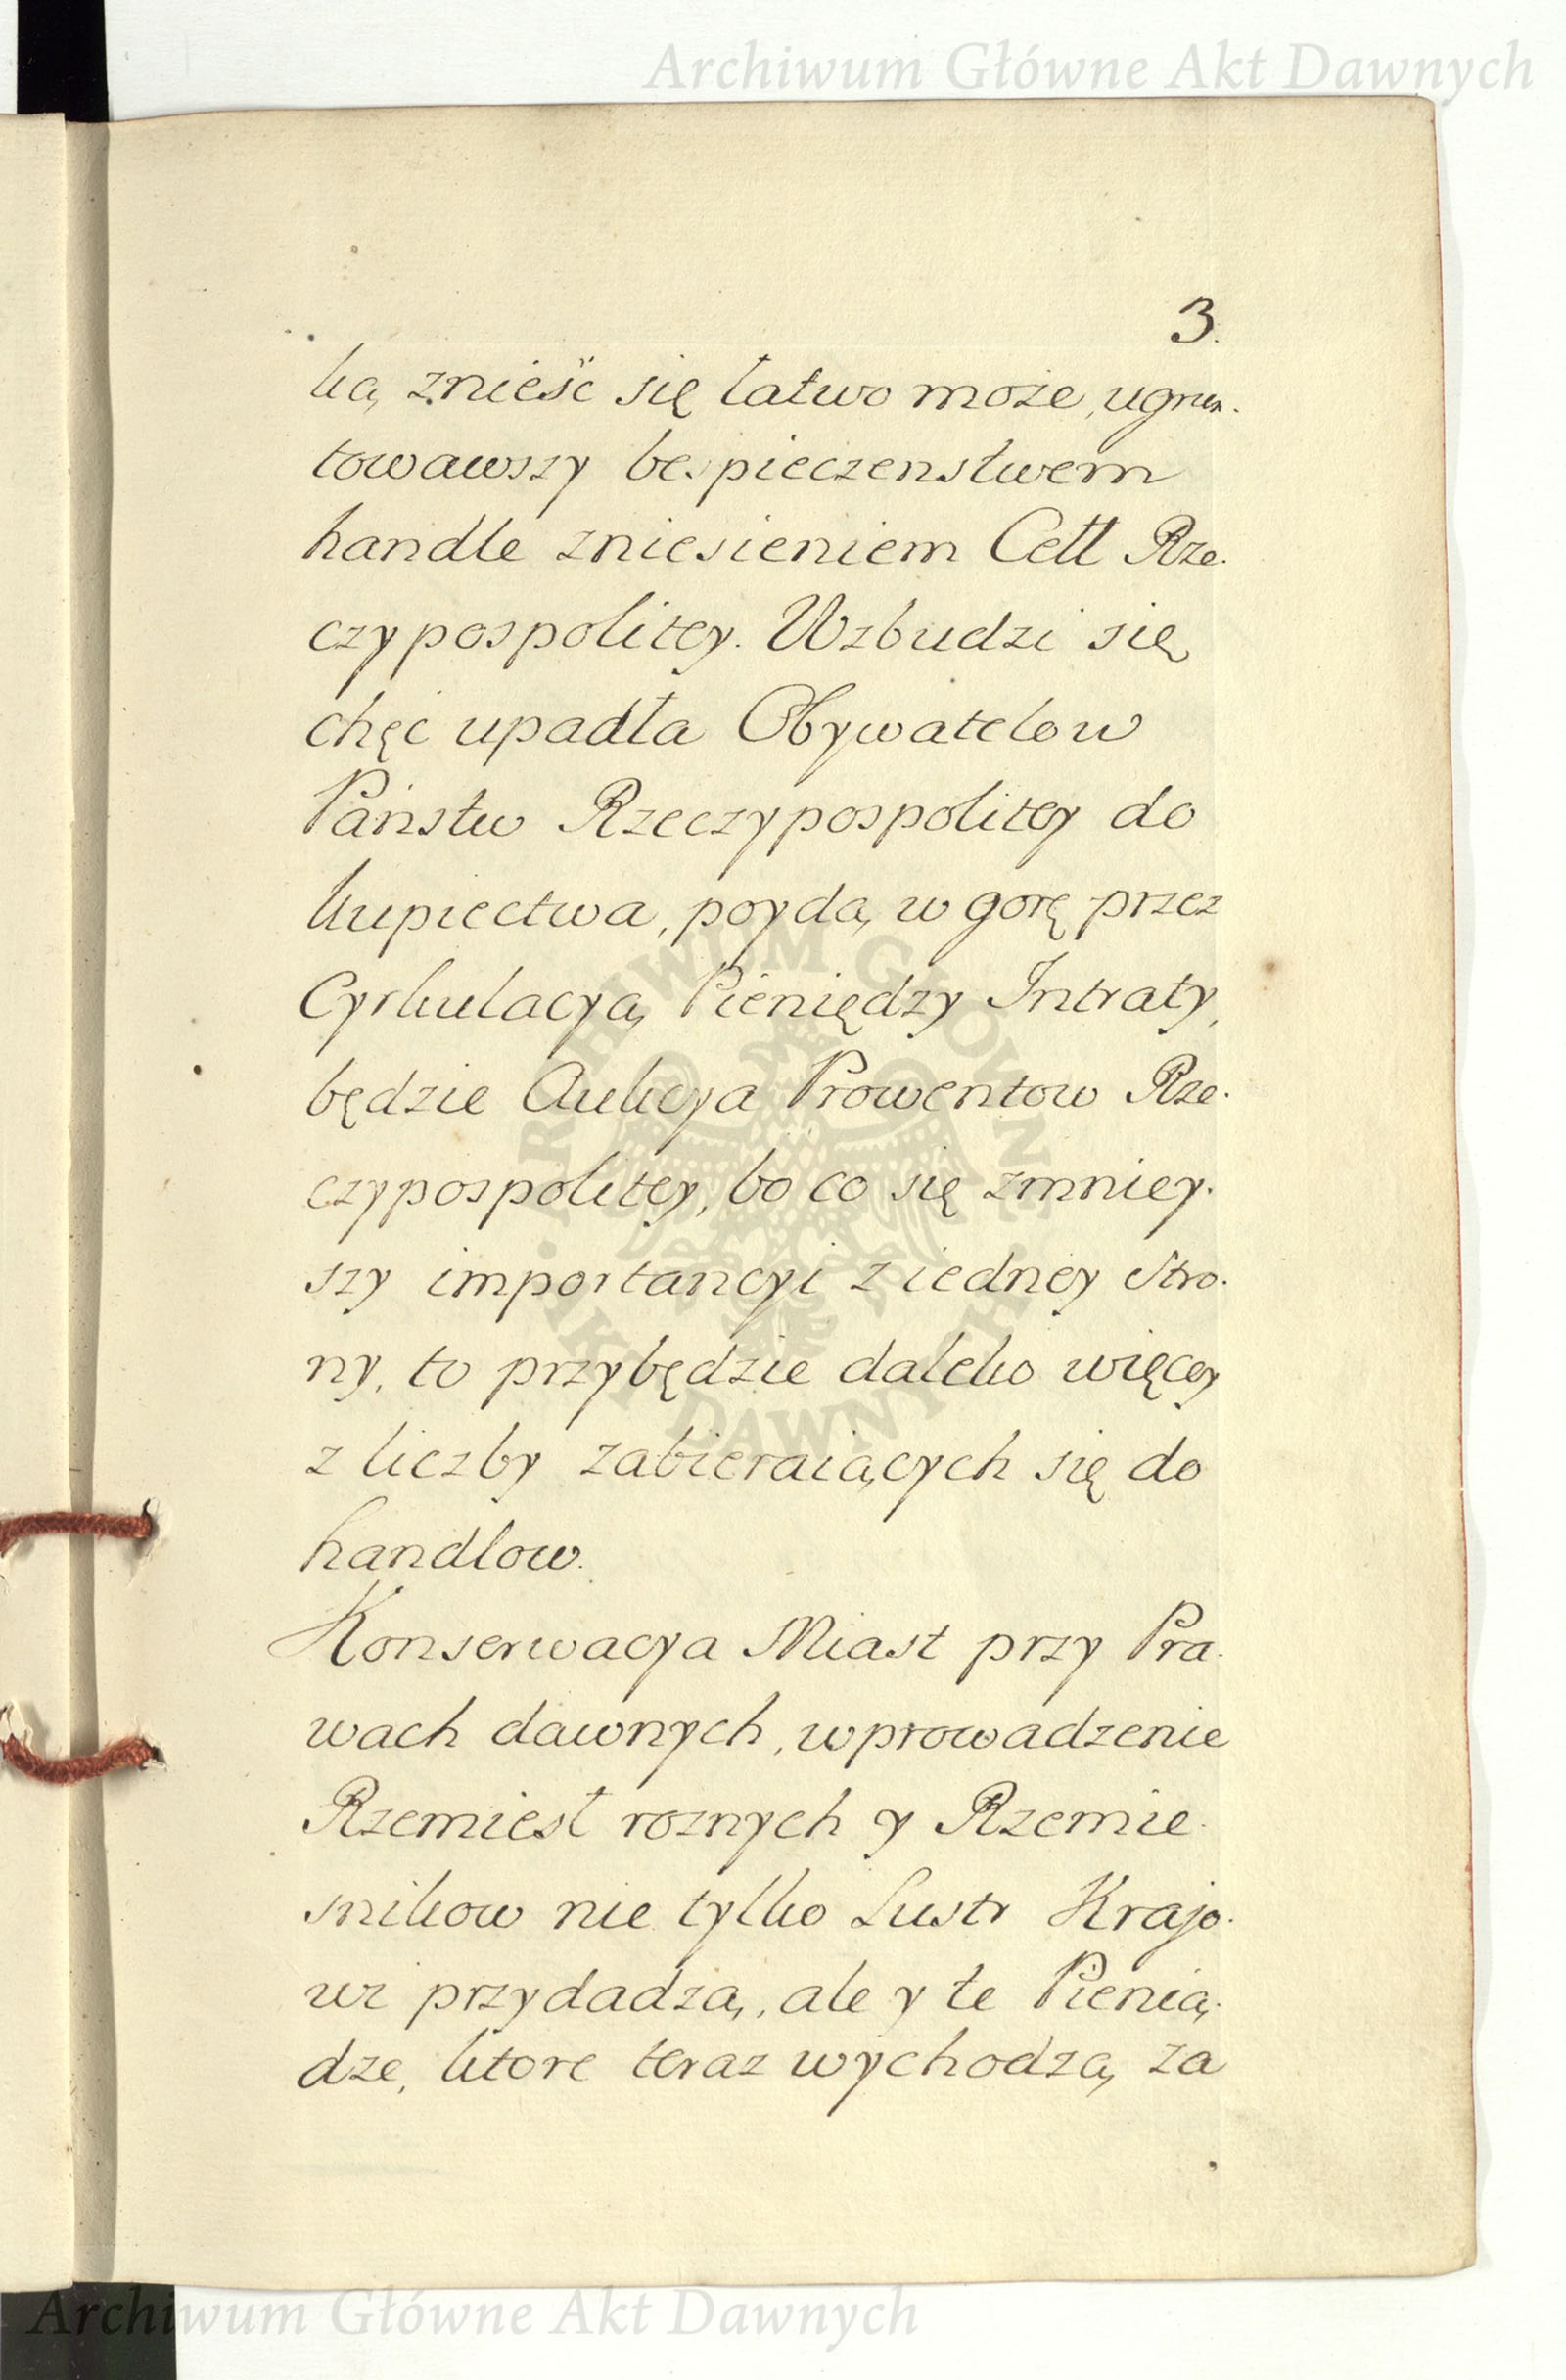 Archiwum Główne Akt Dawnych
3.
ką znieść się łatwo może, ugrun-
towawszy bespieczenstwem
handle zniesieniem Cełł Rze-
czypospolitey. Wzbudzi się
chęć upadła Obywatelow
Państw Rzeczypospolitey do
kupiectwa, poyda, w gorę przez
Cyrkulacyą Pieniędzy Intraty,
będzie Aukcya Prowentow Rze-
czypospolitey, bo co się zmniey-
szy importancyi z iedney Stro-
ny, to przybędzie daleko więcey
z liczby zabieraiących się do
handlow.
Konserwacya Miast przy Pra-
wach dawnych, wprowadzenie
Rzemiesł roznych y Rzemie-
snikow nie tylko Lustr Krajo-
wi przydadzą, ale y te Pienią-
dze, ktore teraz wychodzą za
ARCHIWUM GŁÓWNE AKT DAWNYCH
Archiwum Główne Akt Dawnych